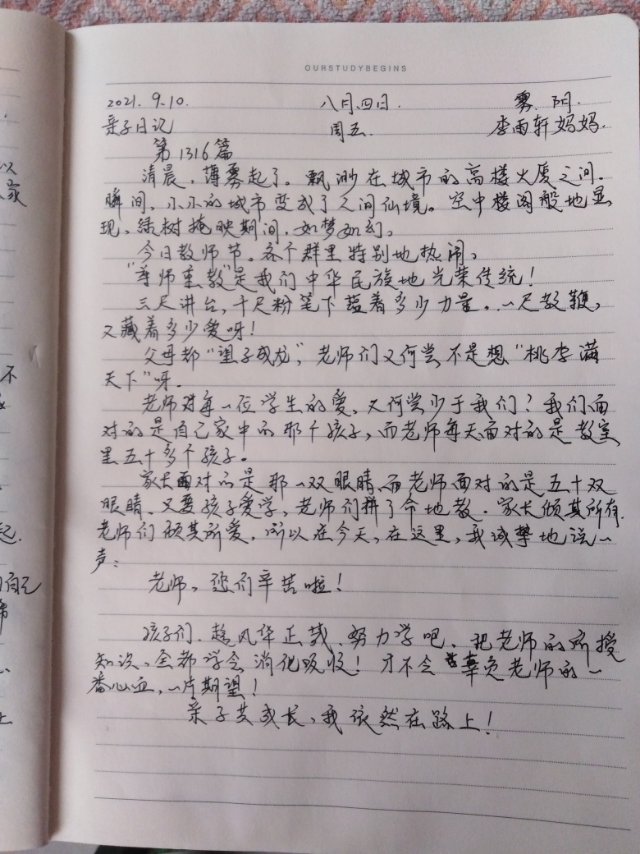 OURSTUDYBEGINS
2021. 9.10. 八月四日. 雾.阴.
亲子日记 周五. 李雨轩妈妈.
第1316篇
清晨,薄雾起了。飘渺在城市的高楼大厦之间.
瞬间,小小的城市变成了人间仙境。空中楼阁般地显
现,绿树掩映期间,如梦如幻。
今日教师节。各个群里特别地热闹。
"尊师重教"是我们中华民族地光荣传统!
三尺讲台,十尺粉笔下蕴着多少力量。一尺教鞭,
又藏着多少爱呀!
父母都"望子成龙",老师们又何尝不是想"桃李满
天下"呀.
老师对每一位学生的爱,又何尝少于我们?我们面
对的是自己家中的那个孩子,而老师每天面对的是教室
里五十多个孩子。
家长面对的是那一双眼睛,而老师面对的是五十双
眼睛、又要孩子爱学,老师们拼了命地教.家长倾其所有,
老师们倾其所爱,所以在今天,在这里,我诚挚地说一
声:
老师,您们辛苦啦!
孩子们.趁风华正茂.努力学吧.把老师的所授
知识、全都学会消化吸收!才不会辜负老师的一
番心血,一片期望!
亲子共成长,我依然在路上!
以
家
不
起.
的自己
上